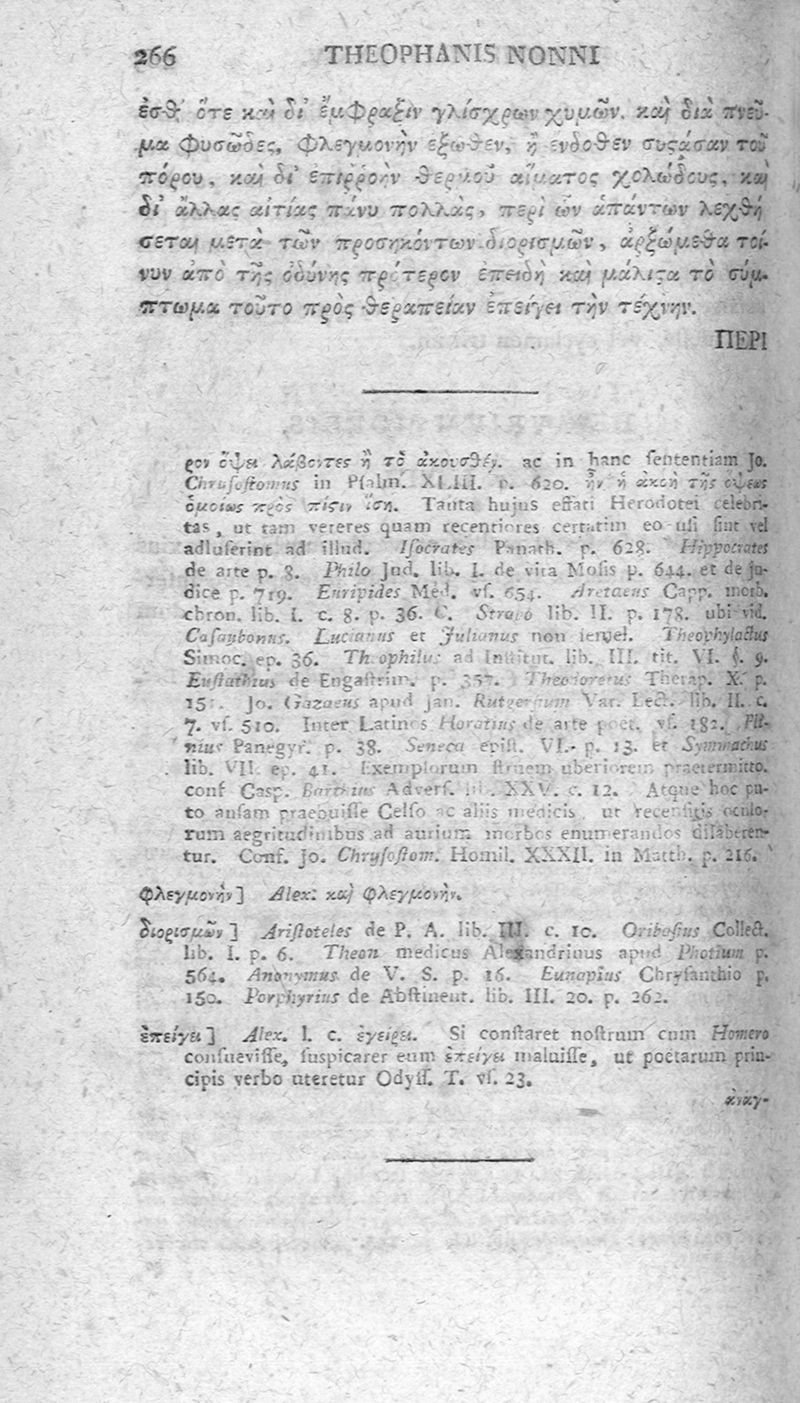 266 THEOPHANIS NONNI
ἐσθ᾽ ὅτε καὶ δι᾽ ἔμφραξιν γλίσχρων χυμῶν, καὶ διὰ πνεῦ-
μα φυσῶδες, φλεγμονὴν ἔξωθεν, ἢ ἔνδοθεν συςᾶσαν τοῦ
πόρου, καὶ δι᾽ ἐπιῤῥοὴν θερμοῦ αἵματος χολώδους, καὶ
δι᾽ ἄλλας αἰτίας πάνυ πολλὰς, περὶ ὧν ἁπάντων λεχθή
σεται μετὰ τῶν προσηκόντων διορισμῶν, ἀρξώμεθα τοί-
νυν ἀπὸ τῆς ὀδύνης πρότερον ἐπειδὴ καὶ μάλιςα τὸ σύμ-
πτωμα τοῦτο πρὸς θεραπείαν ἐπείγει τὴν τέχνην.
ΠΕΡΙ
ρον ὄψει λάβοντες ἢ τὸ ἀκουσθέν. ac in hanc ſententiam Jo.
Chryſoſtomus in Pſalm. XLIII. p. 620. ἦν ἡ ἀκοὴ τῆς ὄψεως
ὁμοίως πρὸς πίςιν ἴση. Tanta hujus effati Herodotei celebri-
tas, ut tam veteres quam recentiores certatim eo uſi ſint vel
adluſerint ad illud. Iſocrates Panath. p. 628. Hippocrates
de arte p. 8. Philo Jud. lib. I. de vita Moſis p. 644. et de ju-
dice p. 719. Euripides Med. vſ. 654. Aretaeus Capp. morb.
chron. lib. I. c. 8. p. 36. C. Strabo lib. II. p. 178. ubi vid.
Caſaubonus. Lucianus et Julianus non ſemel. Theophylactus
Simoc. ep. 36. Theophilus ad Inſtitut. lib. III. tit. VI. §. 9.
Euſtathius de Engaſtrim. p. 357. Theodoretus Therap. X. p.
15. Jo. Gazaeus apud Jan. Rutgerſium Var. Lect. lib. II. c.
7. vſ. 510. Inter Latinos Horatius de arte poet. vſ. 182. Pli-
nius Panegyr. p. 38. Seneca epiſt. VI. p. 13. et Symmachus
lib. VII. ep. 41. Exemplorum ſtruem uberiorem praetermitto.
conf Caſp. Barthius Adverſ. lib. XXV. c. 12. Atque hoc pu-
to anſam praebuiſſe Celſo ac aliis medicis, ut recenſitis oculo-
rum aegritudinibus ad aurium morbos enumerandos dilaberen-
tur. Conf. Jo. Chryſoſtom. Homil. XXXII. in Matth. p. 216.
φλεγμονὴν] Alex. καὶ φλεγμονὴν.
διορισμῶν] Ariſtoteles de P. A. lib. III. c. 10. Oribaſius Collect.
lib. I. p. 6. Theon medicus Alexandrinus apud Photium p.
564. Anonymus de V. S. p. 16. Eunapius Chryſanthio p.
150. Porphyrius de Abſtinent. lib. III. 20. p. 262.
ἐπείγει] Alex. l. c. ἐγείρει. Si conſtaret noſtrum cum Homero
conſueviſſe, ſuſpicarer eum ἐπείγει maluiſſe, ut poëtarum prin-
cipis verbo uteretur Odyſſ. T. vſ. 23.
ἀναγ-